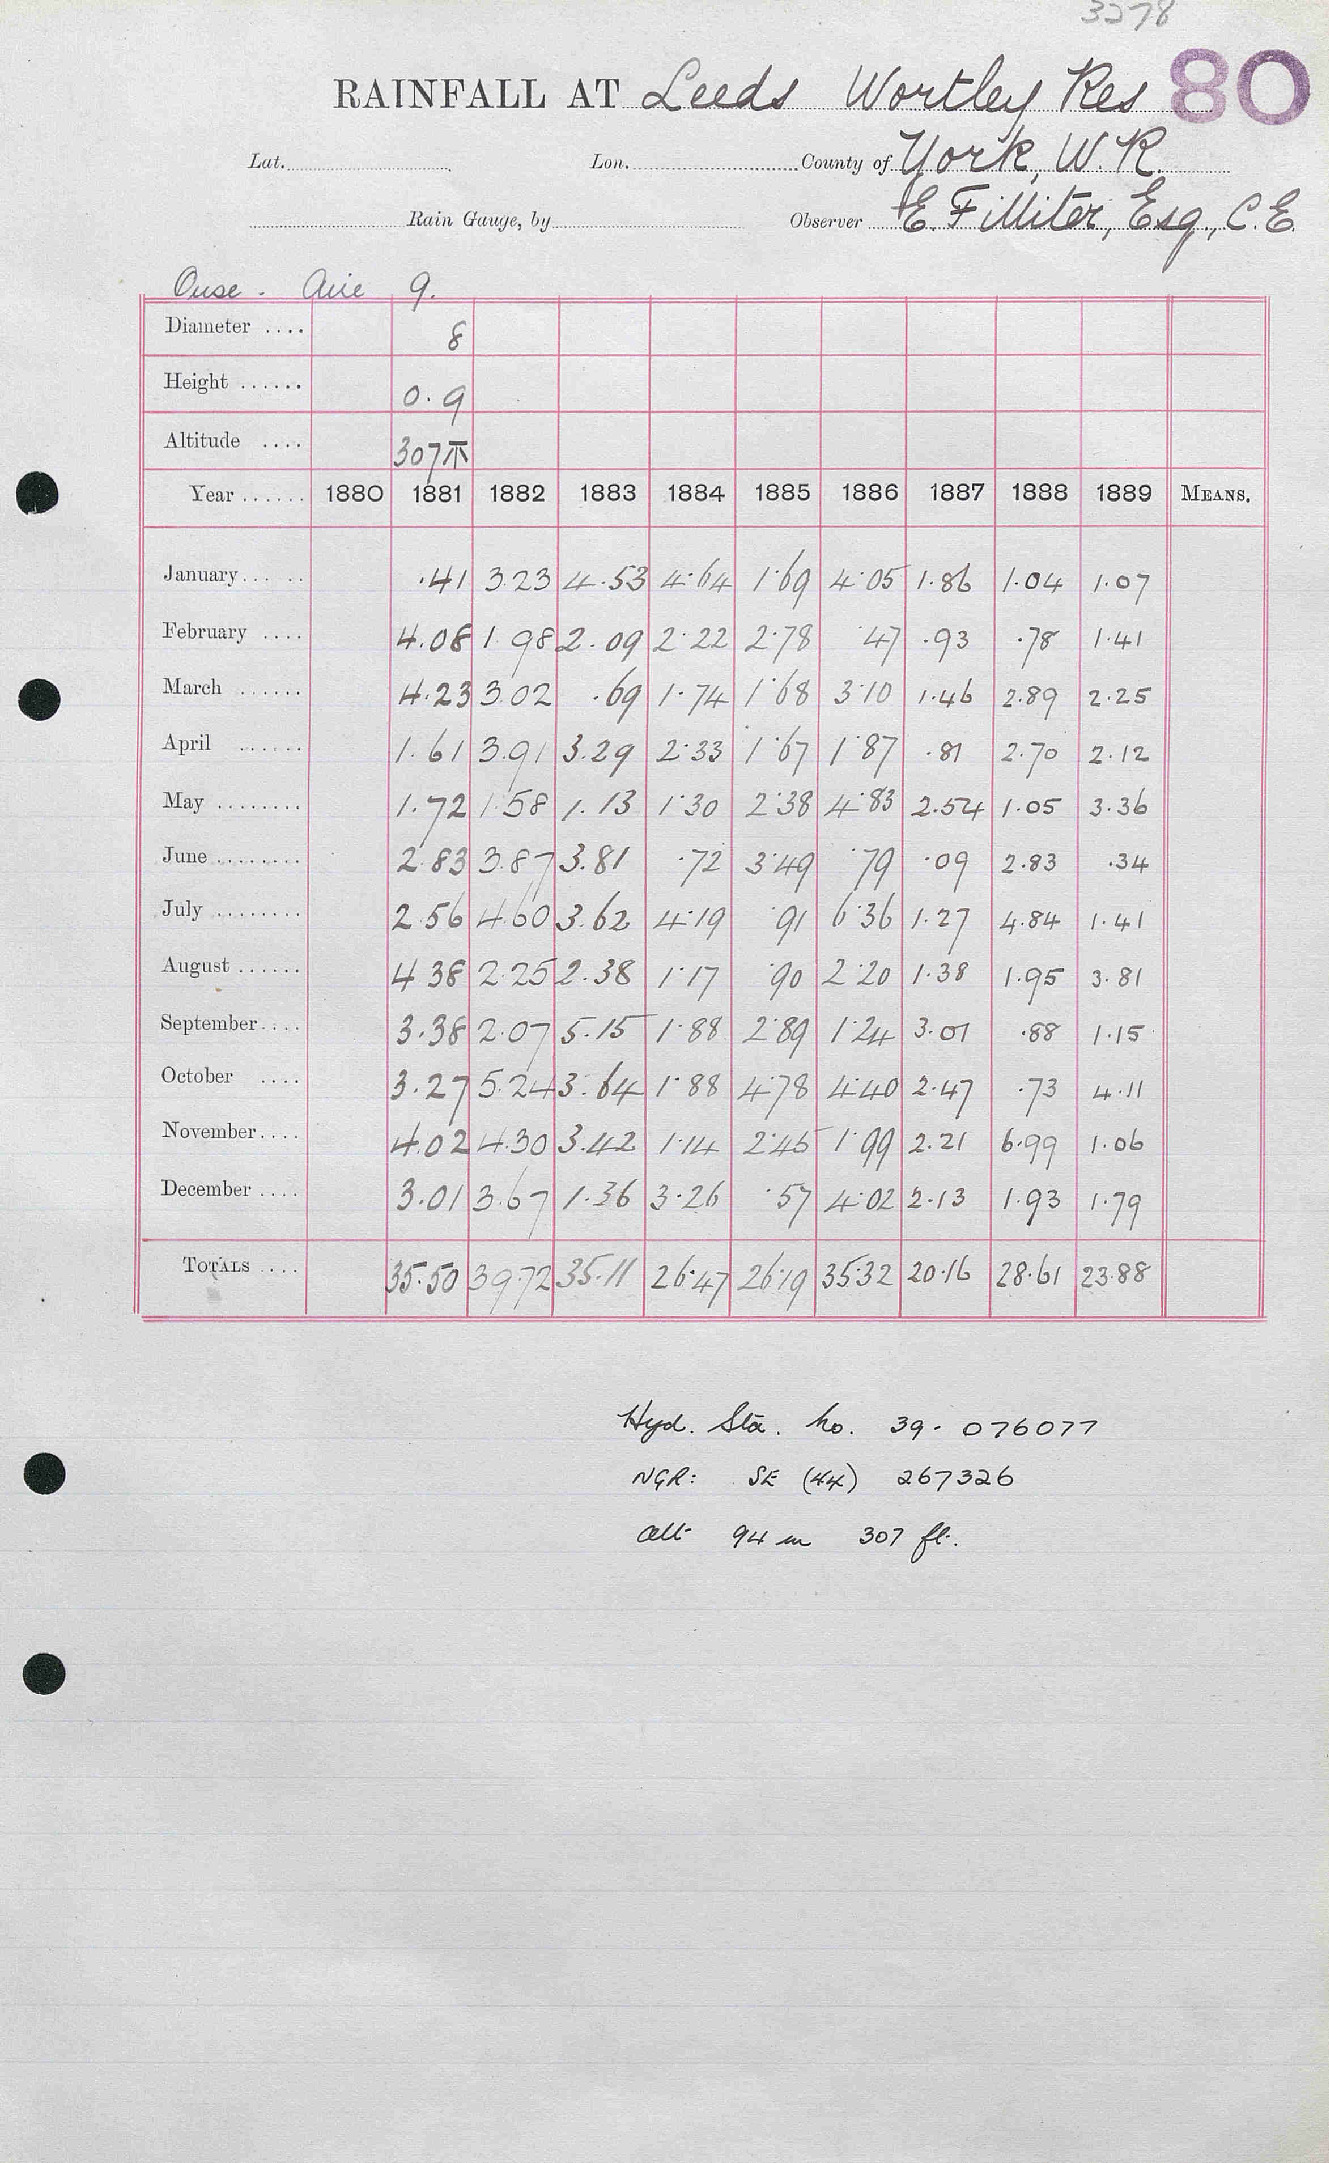 3278
RAINFALL AT Leeds Wortley Res 80
Lat. Lon. County of York, W.R.
Rain Gauge, by Observer E. Filliter, Esq., C.E.
Ouse - Aire 9.
Diameter .... 8
Height ...... 0.9
Altitude .... 307
Year ...... 1880 1881 1882 1883 1884 1885 1886 1887 1888 1889 MEANS.
January ... .41 3.23 4.53 4.64 1.69 4.05 1.86 1.04 1.07
February .... 4.08 1.98 2.09 2.22 2.78 .47 .93 .78 1.41
March ...... 4.23 3.02 .69 1.74 1.68 3.10 1.46 2.89 2.25
April ...... 1.61 3.91 3.29 2.33 1.67 1.87 .81 2.70 2.12
May ........ 1.72 1.58 1.13 1.30 2.38 4.83 2.54 1.05 3.36
June ........ 2.83 3.87 3.81 .72 3.49 .79 .09 2.83 .34
July ........ 2.56 4.60 3.62 4.19 .91 6.36 1.27 4.84 1.41
August ...... 4.38 2.25 2.38 1.17 .90 2.20 1.38 1.95 3.81
September .... 3.38 2.07 5.15 1.88 2.89 1.24 3.01 .88 1.15
October .... 3.27 5.24 3.64 1.88 4.78 4.40 2.47 .73 4.11
November .... 4.02 4.30 3.42 1.14 2.45 1.99 2.21 6.99 1.06
December .... 3.01 3.67 1.36 3.26 .57 4.02 2.13 1.93 1.79
TOTALS .... 35.50 39.72 35.11 26.47 26.19 35.32 20.16 28.61 23.88
Hyd. Sta. No. 39. 076077
NGR: SE (44) 267326
Alt 94 m 307 ft.